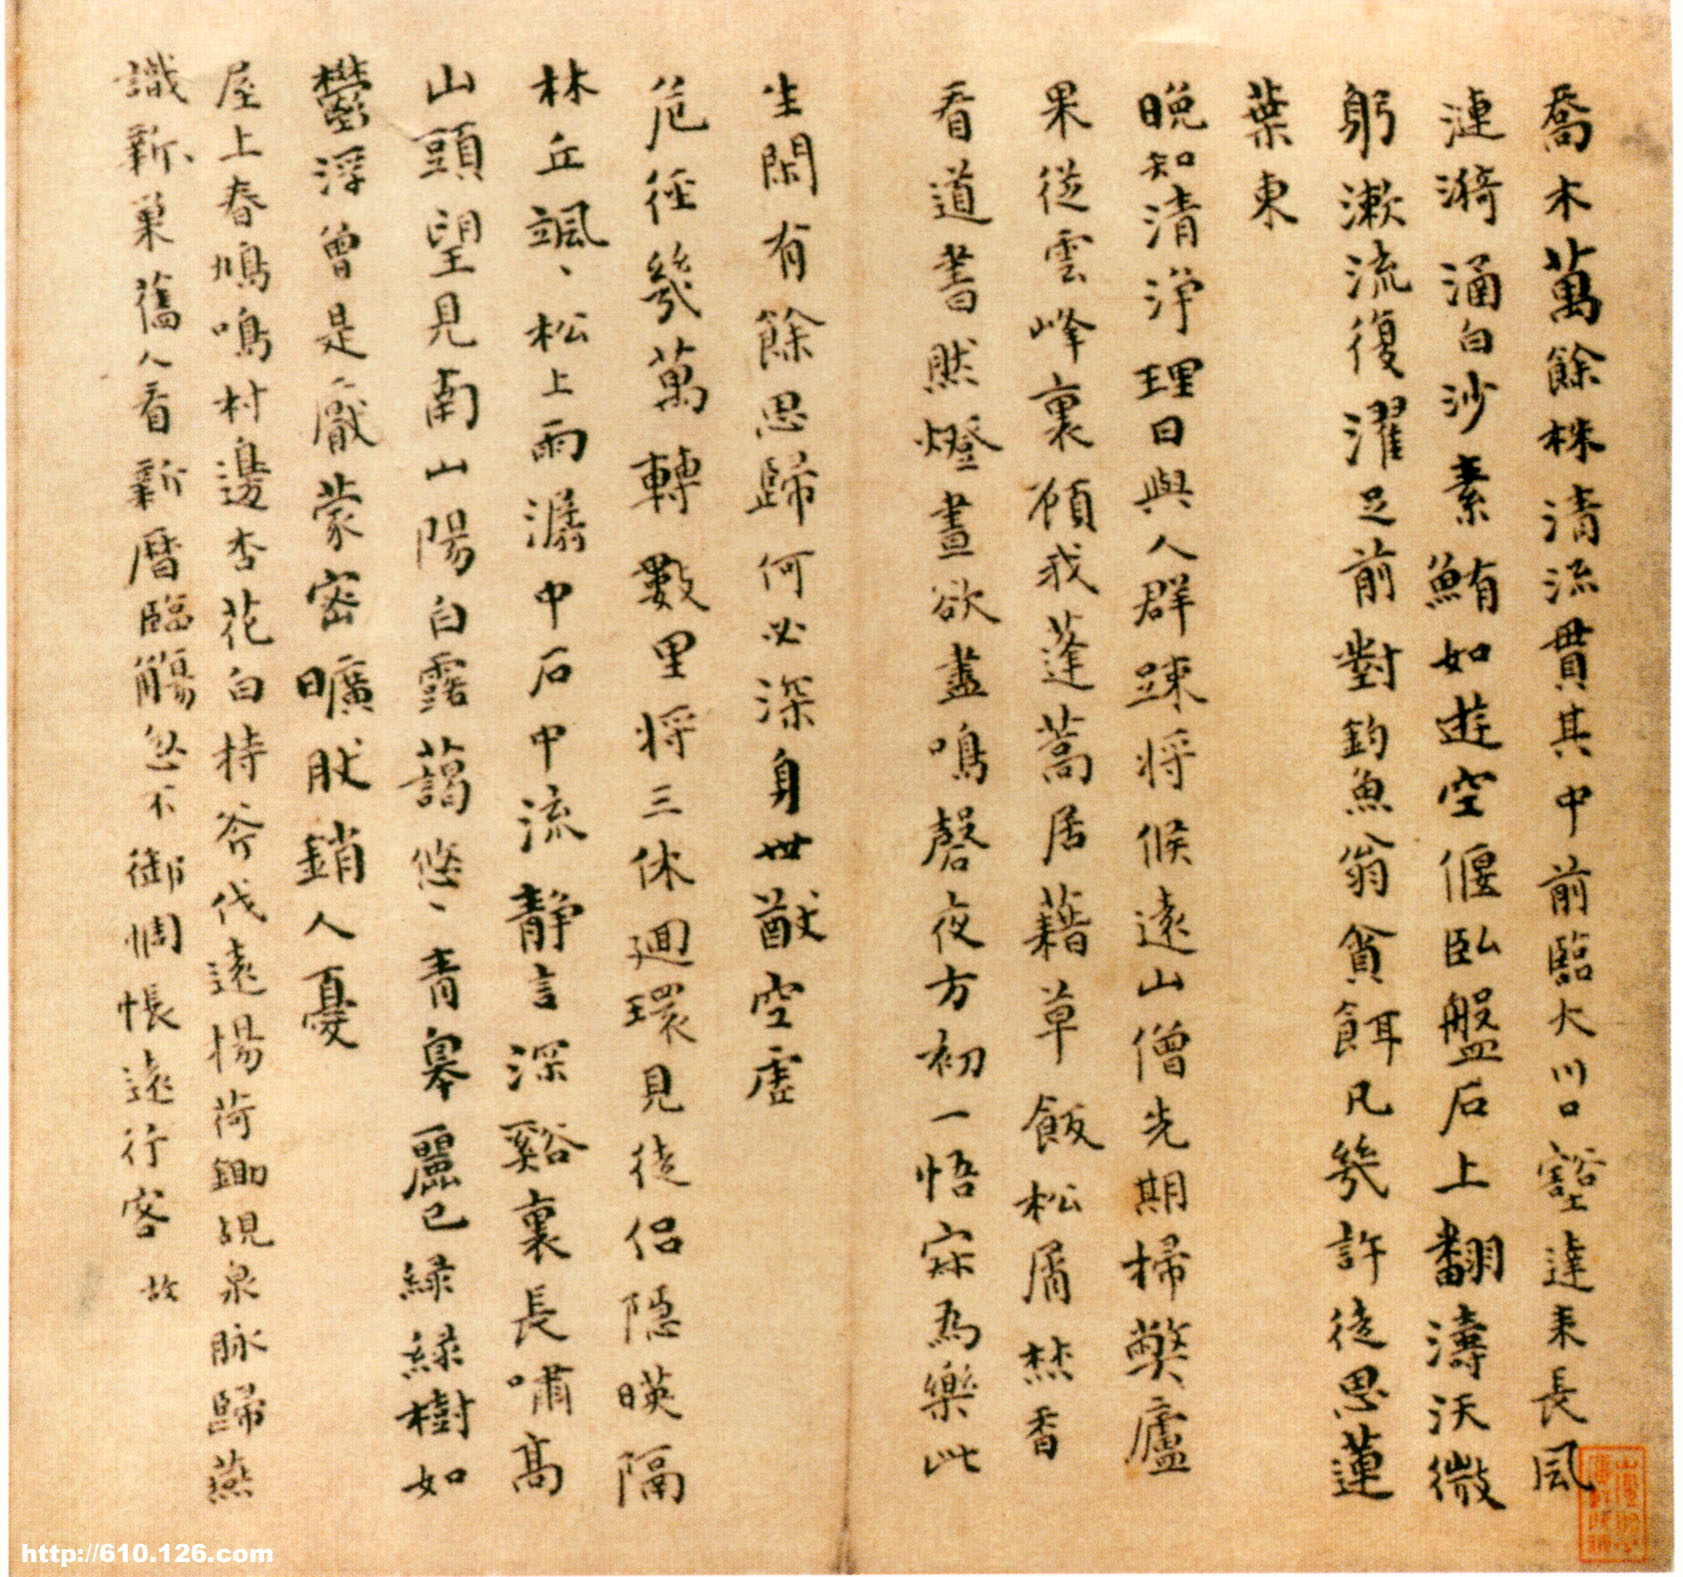 喬木萬餘株清流貫其中前臨大川口豁達来長風
漣漪涵白沙素鮪如遊空偃臥盤石上翻濤沃微
躬漱流復濯足前對釣魚翁貪餌凡幾許徒思蓮
葉東
晚知清淨理日與人群踈将候遠山僧先期掃獘廬
果從雲峰裏顧我蓬蒿居藉草飯松屑焚香
看道書然燈晝欲盡鳴磬夜方初一悟寂為樂此
生閑有餘思歸何必深身世猷空虛
危徑幾萬轉數里将三休廻環見徒侣隱暎隔
林丘颯、松上雨潺中石中流靜言深谿裏長嘯高
山頭望見南山陽白露藹悠、青皋麗已緑緑樹如
鬱浮曾是厭蒙密曠肰銷人憂
屋上春鳩鳴村邊杏花白持斧伐遠楊荷鋤覘泉脉歸燕
識新、巢舊人看新曆臨觴忽不御惆悵遠行客 故
http://610.126.com